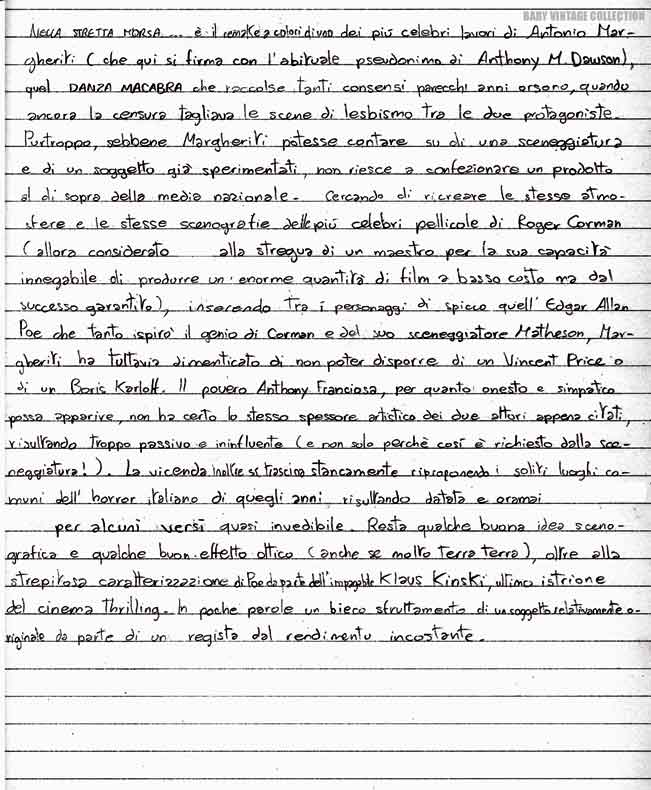 BABY VINTAGE COLLECTION
NELLA STRETTA MORSA ... è il remake a colori di uno dei più celebri lavori di Antonio Mar-
gheriti (che qui si firma con l'abituale pseudonimo di Anthony M. Dawson),
quel DANZA MACABRA che raccolse tanti consensi parecchi anni orsono, quando
ancora la censura tagliava le scene di lesbismo tra le due protagoniste.
Purtroppo, sebbene Margheriti potesse contare su di una sceneggiatura
e di un soggetto già sperimentati, non riesce a confezionare un prodotto
al di sopra della media nazionale. Cercando di ricreare le stesse atmo-
sfere e le stesse scenografie delle più celebri pellicole di Roger Corman
(allora considerato alla stregua di un maestro per la sua capacità
innegabile di produrre un'enorme quantità di film a basso costo ma dal
successo garantito), inserendo tra i personaggi di spicco quell'Edgar Allan
Poe che tanto ispirò il genio di Corman e del suo sceneggiatore Matheson, Mar-
gheriti ha tuttavia dimenticato di non poter disporre di un Vincent Price o
di un Boris Karloff. Il povero Anthony Franciosa, per quanto onesto e simpatico
possa apparire, non ha certo lo stesso spessore artistico dei due attori appena citati,
risultando troppo passivo e ininfluente (e non solo perchè così è richiesto dalla sce-
neggiatura!). La vicenda inoltre si trascina stancamente riproponendo i soliti luoghi co-
muni dell'horror italiano di quegli anni, risultando datata e oramai
per alcuni versi quasi invedibile. Resta qualche buona idea sceno-
grafica e qualche buon effetto ottico (anche se molto terra terra), oltre alla
strepitosa caratterizzazione di Poe da parte dell'impagabile Klaus Kinski, ultimo istrione
del cinema thrilling. In poche parole un bieco sfruttamento di un soggetto relativamente o-
riginale da parte di un regista dal rendimento incostante.